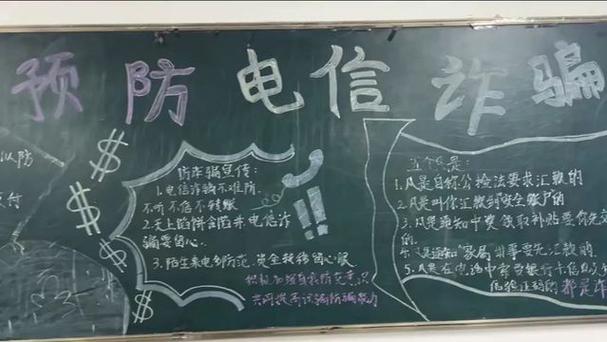 预防电信诈骗
防
付
防诈骗宣传:
1.电信诈骗不难防,
不听不信不转账
2.天上陷饼会因来,电信诈
骗要留心.
3.陌生来电多防范,资金转移留心眼
积极加强自我防范意识
共同提高识骗防骗能力
五个凡是:
1.凡是自称公检法要求汇款的
2.凡是叫你汇款到安全账户的
3.凡是通知中奖领取补贴要你先
的.
4.凡是通知"家属"出事要先汇款的.
5.凡是在电话中索要银行卡信息
的都是诈